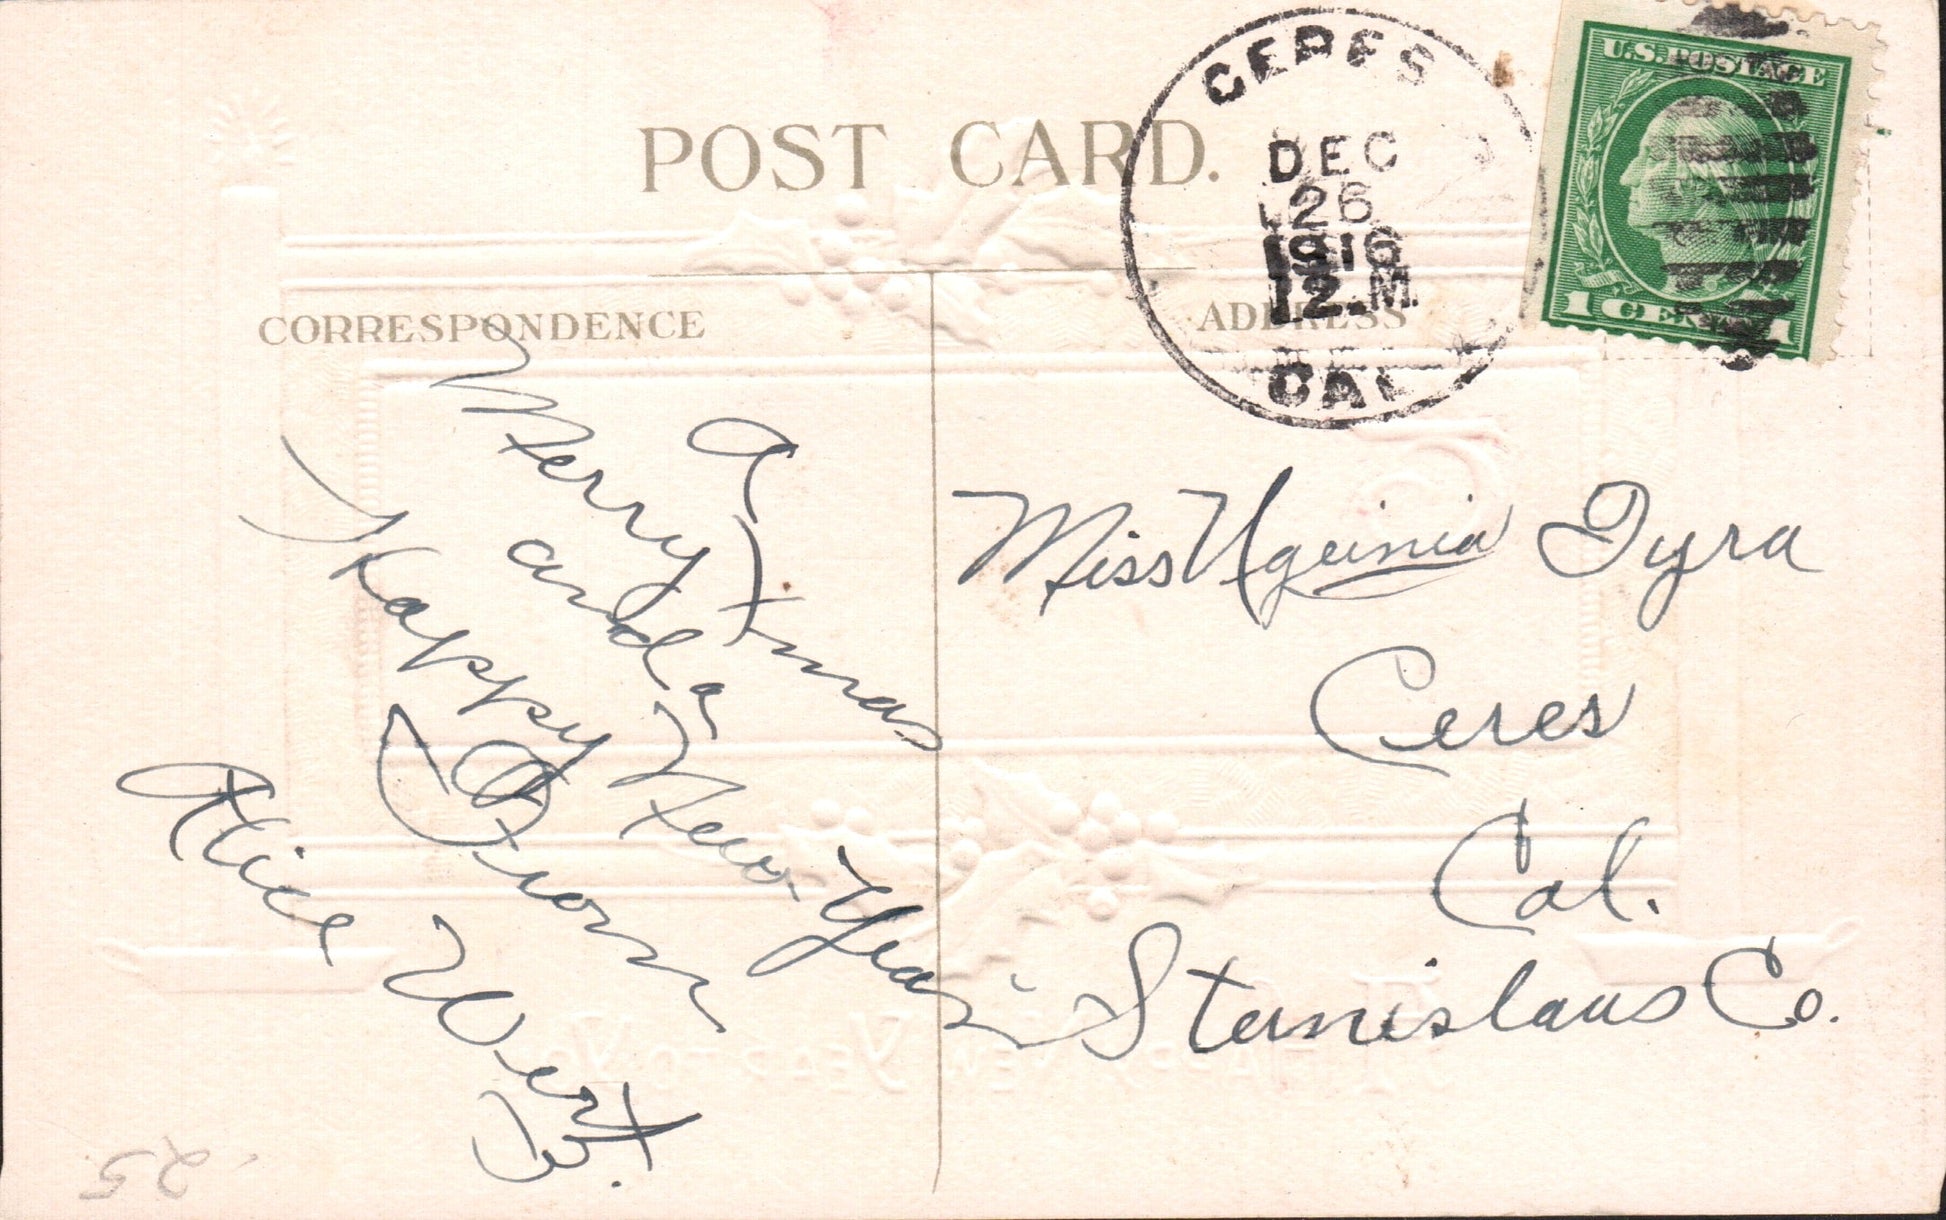 POST CARD.
CERES
DEC
26
1916
12 M.
CAL
U.S. POSTAGE
1 CENT 1
CORRESPONDENCE
ADDRESS
A
Merry Xmas
and a
Happy New Year
From
Alice West
B.
Miss Virginia Tyra
Ceres
Cal.
Stanislaus Co.
A HAPPY NEW YEAR TO YOU
.25